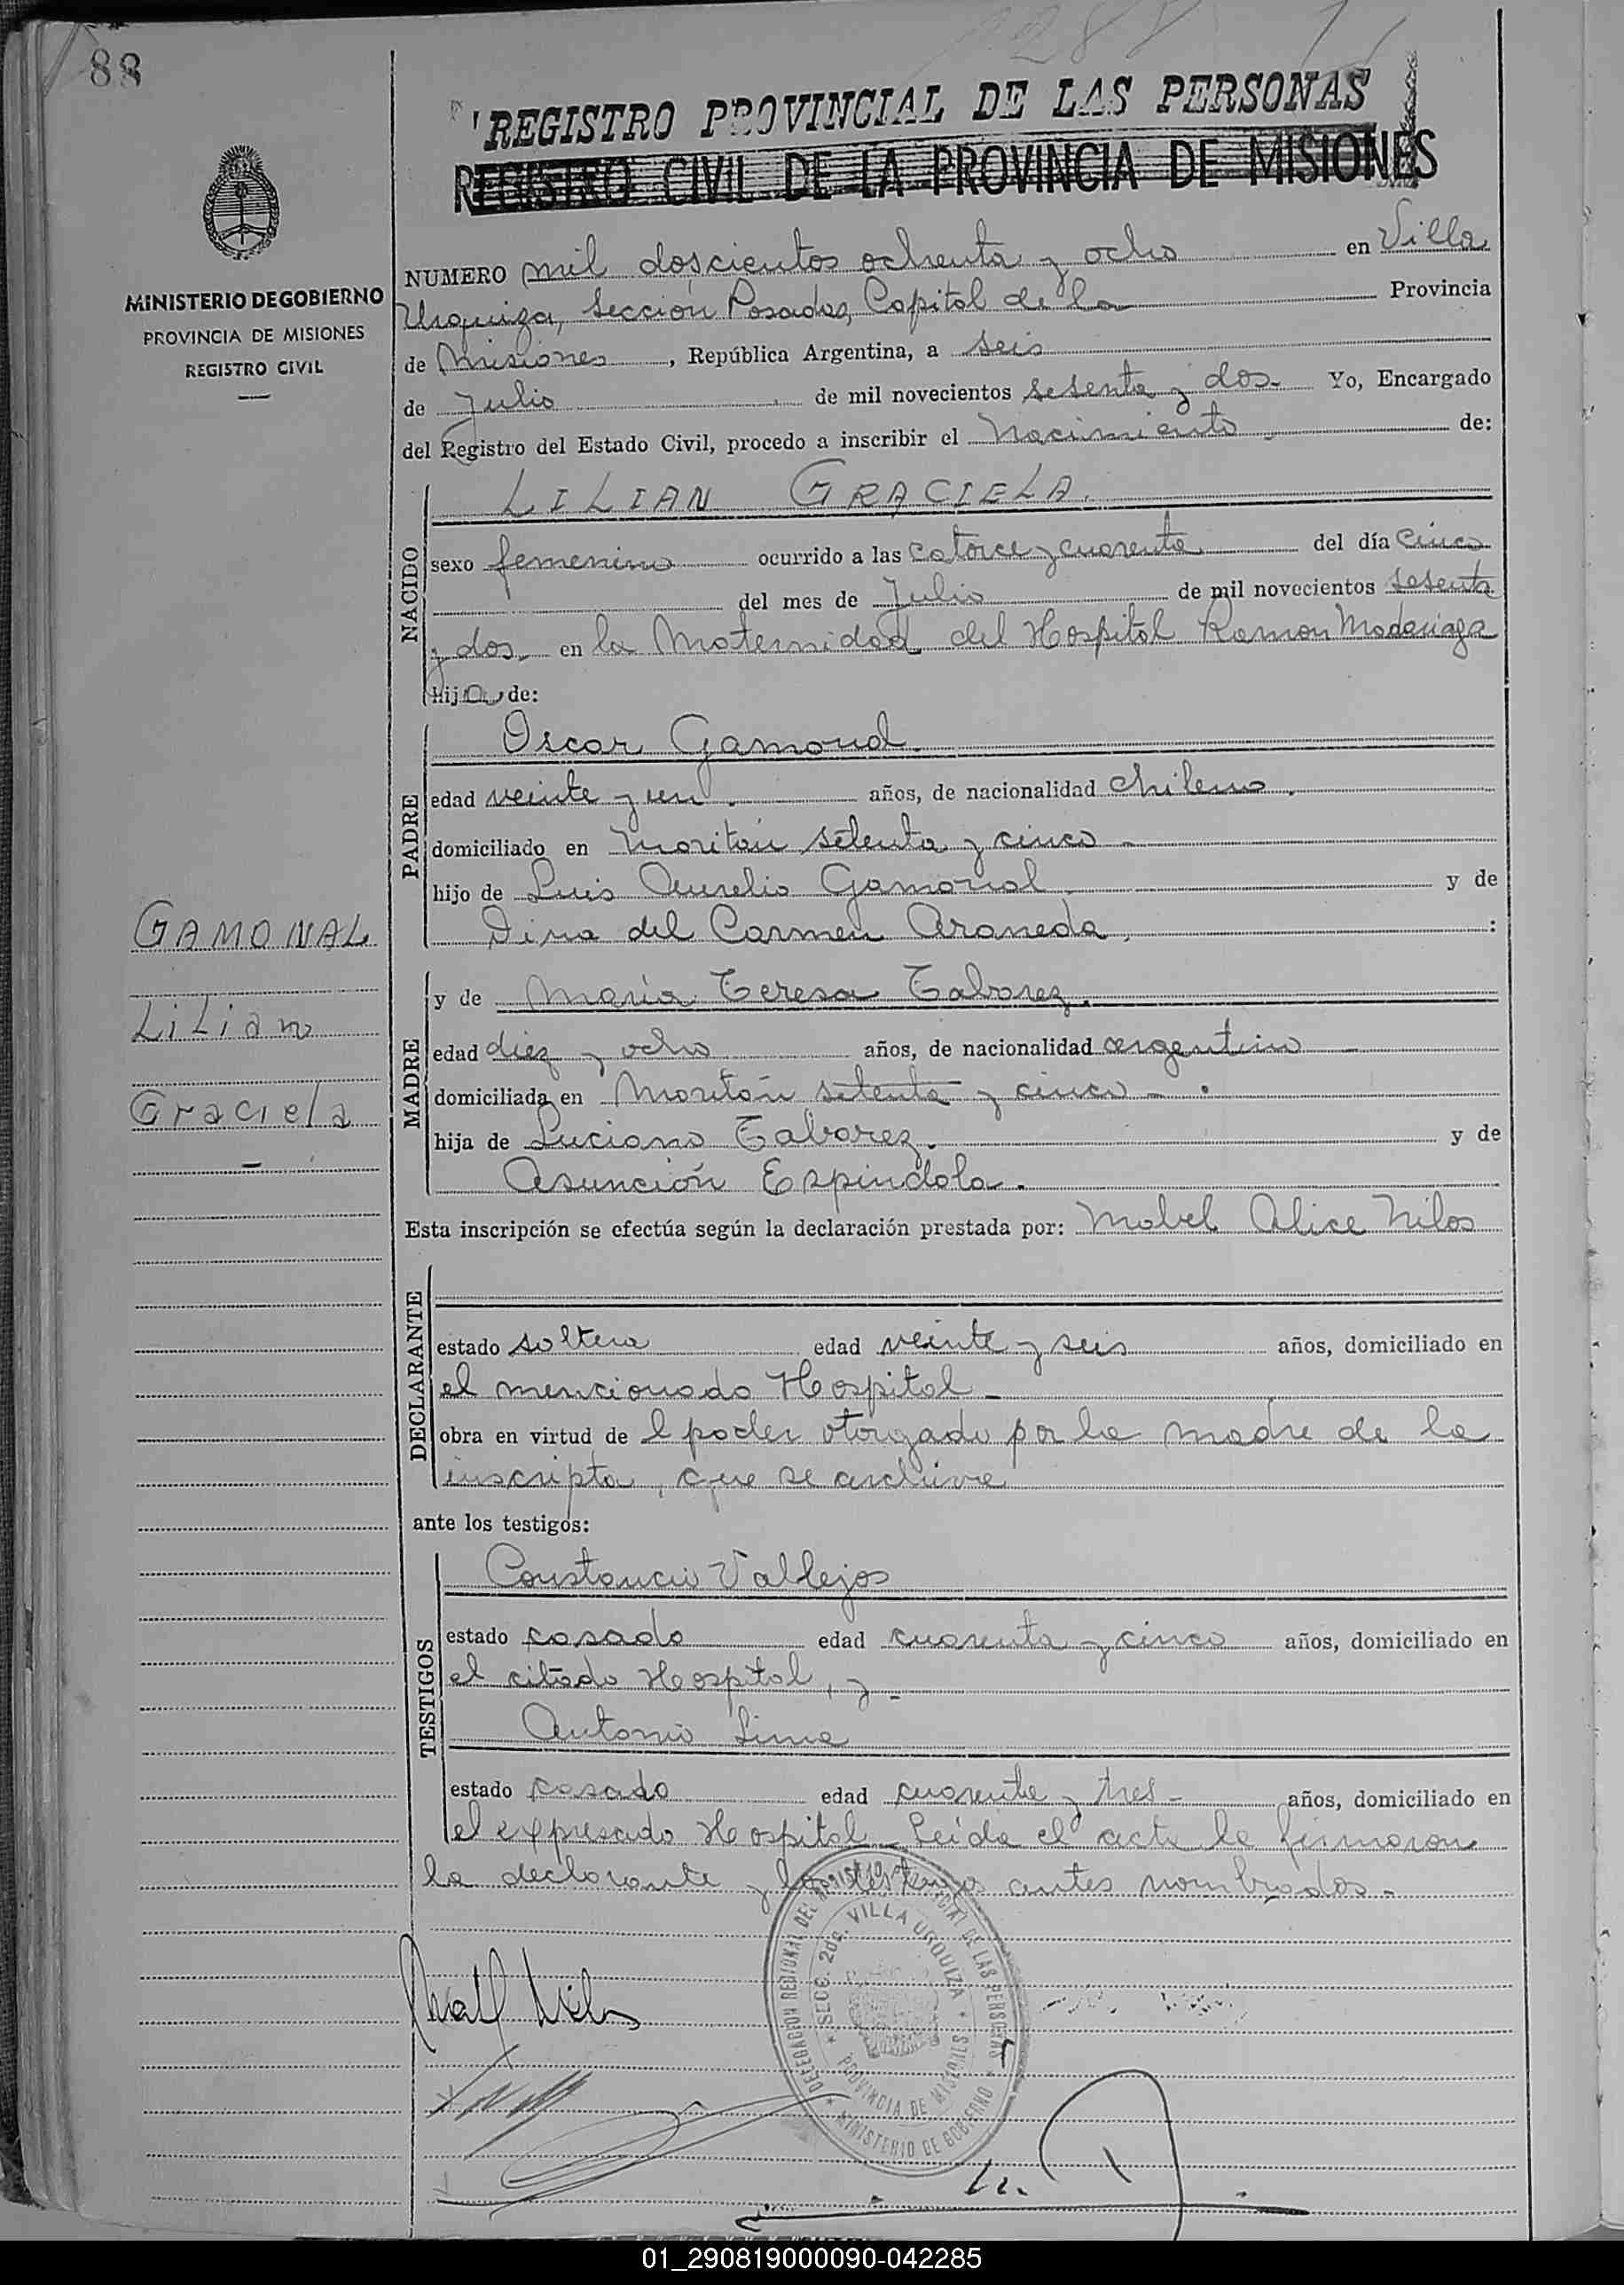 88
1288
REGISTRO PROVINCIAL DE LAS PERSONAS
REGISTRO CIVIL DE LA PROVINCIA DE MISIONES
MINISTERIO DE GOBIERNO
PROVINCIA DE MISIONES
REGISTRO CIVIL
NUMERO mil doscientos ochenta y ocho en Villa
Urquiza, Sección Posadas, Capital de la Provincia
de Misiones, República Argentina, a seis
de Julio de mil novecientos sesenta y dos.- Yo, Encargado
del Registro del Estado Civil, procedo a inscribir el Nacimiento de:
NACIDO
LILIAN GRACIELA.
sexo femenino ocurrido a las catorce y cuarenta del día cinco
del mes de Julio de mil novecientos sesenta
y dos, en la Maternidad del Hospital Ramon Madariaga
hija de:
PADRE
Oscar Gamonal.
edad veinte y un años, de nacionalidad chileno.
domiciliado en Moritán setenta y cinco -
hijo de Luis Aurelio Gamonal y de
Dina del Carmen Araneda, :
GAMONAL
Lilian
Graciela
MADRE
y de María Teresa Tabarez.
edad diez y ocho años, de nacionalidad argentina -
domiciliada en Moritán setenta y cinco - .
hija de Luciano Tabarez. y de
Asunción Espindola.
Esta inscripción se efectúa según la declaración prestada por: Mabel Alice Nilos
DECLARANTE
estado soltera edad veinte y seis años, domiciliado en
el mencionado Hospital -
obra en virtud de l poder otorgado por la madre de la
inscripta, que se archiva
ante los testigos:
TESTIGOS
Constancio Vallejos
estado casado edad cuarenta y cinco años, domiciliado en
el citado Hospital, y -
Antonio Lima
estado casado edad cuarenta y tres - años, domiciliado en
el expresado Hospital - Leída el acta la firmaron
la declarante y los testigos antes nombrados -
DELEGACION REGIONAL DEL REGISTRO PROVINCIAL DE LAS PERSONAS
SECC. 2da. VILLA URQUIZA
PROVINCIA DE MISIONES
MINISTERIO DE GOBIERNO
01_290819000090-042285